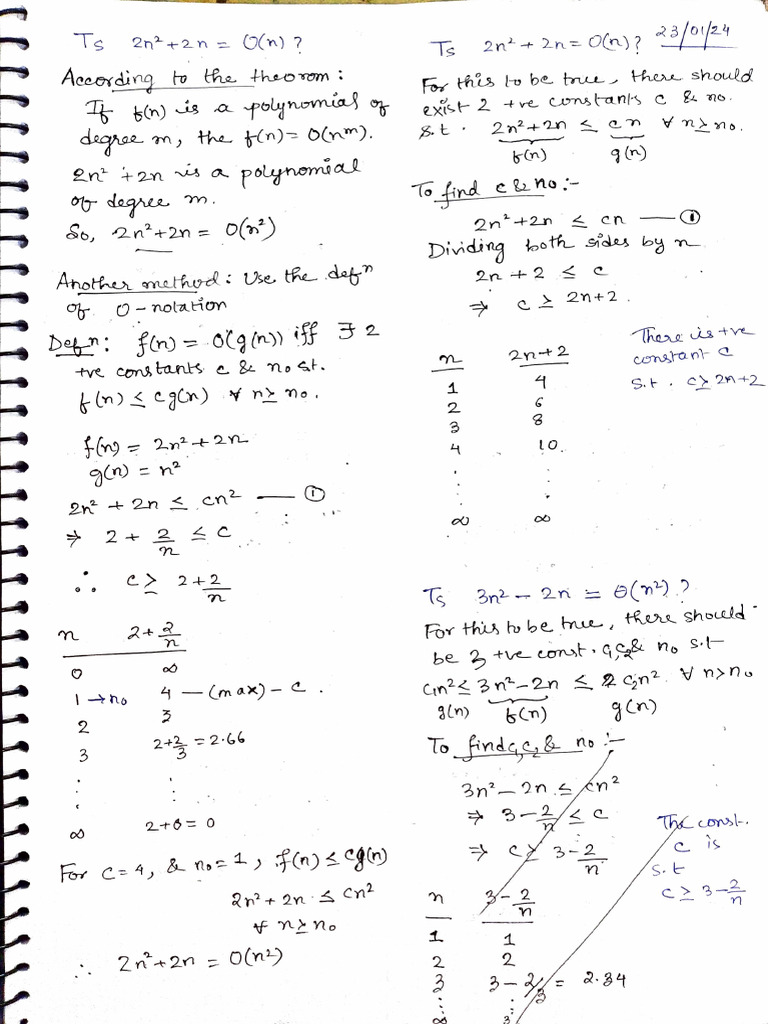 Is 2n² + 2n = O(n) ?
According to the theorom :
If f(n) is a polynomial of
degree m, the f(n) = O(nᵐ).
2n² + 2n is a polynomial
of degree m.
So, 2n² + 2n = O(n²)
Another method : Use the defⁿ
of O-notation
Defⁿ : f(n) = O(g(n)) iff ∃ 2
+ve constants c & no st.
f(n) ≤ cg(n) ∀ n ≥ no.
f(n) = 2n² + 2n
g(n) = n²
2n² + 2n ≤ cn² — ①
⇒ 2 + 2/n ≤ c
∴ c ≥ 2 + 2/n
n 2 + 2/n
0 ∞
1 → no 4 — (max) - c .
2 3
3 2 + 2/3 = 2.66
∞ 2 + 0 = 0
For c = 4, & no = 1, f(n) ≤ cg(n)
2n² + 2n ≤ cn²
∀ n ≥ no
∴ 2n² + 2n = O(n²)
23/01/24
Is 2n² + 2n = O(n) ?
For this to be true, there should
exist 2 +ve constants c & no.
s.t. 2n² + 2n ≤ cn ∀ n ≥ no.
f(n) g(n)
To find c & no :-
2n² + 2n ≤ cn — ①
Dividing both sides by n
2n + 2 ≤ c
⇒ c ≥ 2n + 2 .
n 2n + 2
1 4
2 6
3 8
4 10
∞ ∞
There is +ve
constant c
s.t. c ≥ 2n + 2
Is 3n² - 2n = Θ(n²) ?
For this to be true, there should
be 3 +ve const. c₁, c₂ & no s.t
c₁n² ≤ 3n² - 2n ≤ c₂n² ∀ n > no
g(n) f(n) g(n)
To find c₁, c₂, & no :-
3n² - 2n ≤ cn²
⇒ 3 - 2/n ≤ c
⇒ c ≥ 3 - 2/n
n 3 - 2/n
1 1
2 2
3 3 - 2/3 = 2.34
∞ 3
The const.
c is
s.t
c ≥ 3 - 2/n